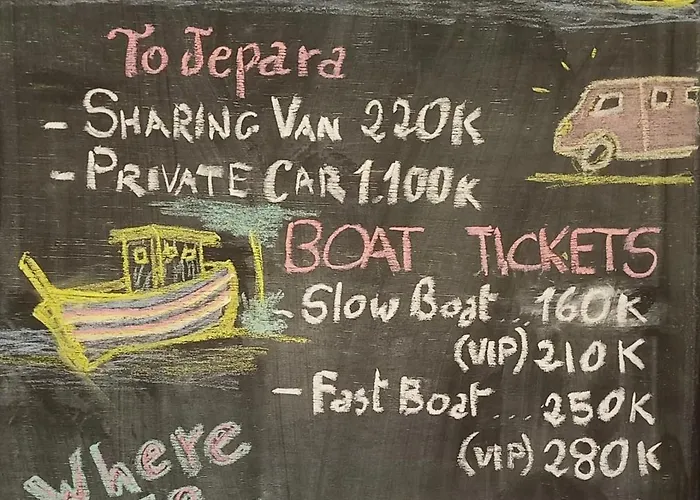 To Jepara
- SHARING VAN 220K
- PRIVATE CAR 1.100K
BOAT TICKETS
- Slow Boat .. 160K
(VIP) 210K
- Fast Boat ... 250K
(VIP) 280K
Where